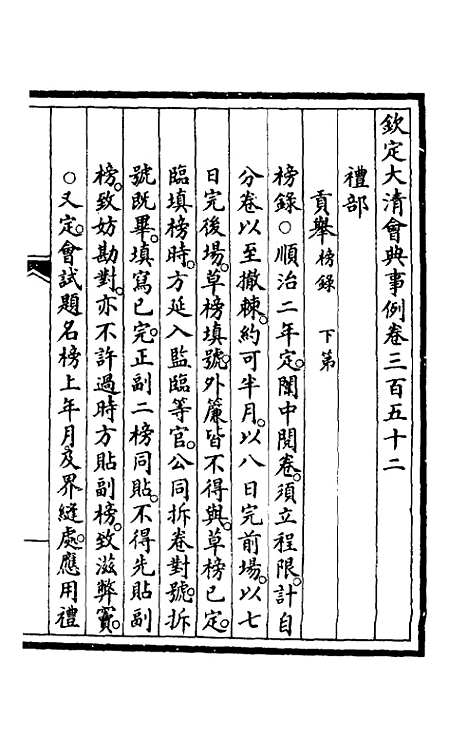 欽定大清會典事例卷三百五十二
禮部
貢舉榜錄　下第
榜錄○順治二年定。闈中閱卷。須立程限。計自
分卷以至撤棘。約可半月。以八日完前場。以七
日完後場。草榜填號。外簾皆不得與。草榜已定。
臨填榜時。方延入監臨等官。公同拆卷對號。拆
號既畢。填寫已完。正副二榜同貼。不得先貼副
榜。致妨勘對。亦不許過時方貼副榜。致滋弊竇。
○又定。會試題名榜上年月。及界縫處。應用禮